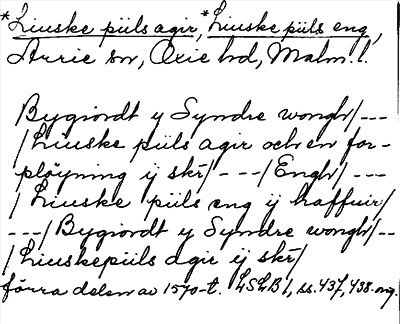 *Liuske piils agir, *Liuske piils eng,
Arrie sn, Oxie hd, Malm. l.
Bygiordt y Syndre wongh/---
/Liuske piils agir och en for-
pløyning ij skr/---/Engh/---
/Liuske piils eng ij haffuir/
---/Bygiordt y Syndre wongh/--
/Liuskepiils agir ij skr/
förra delen av 1570-t. LSLB 1, ss. 437, 438. mg.